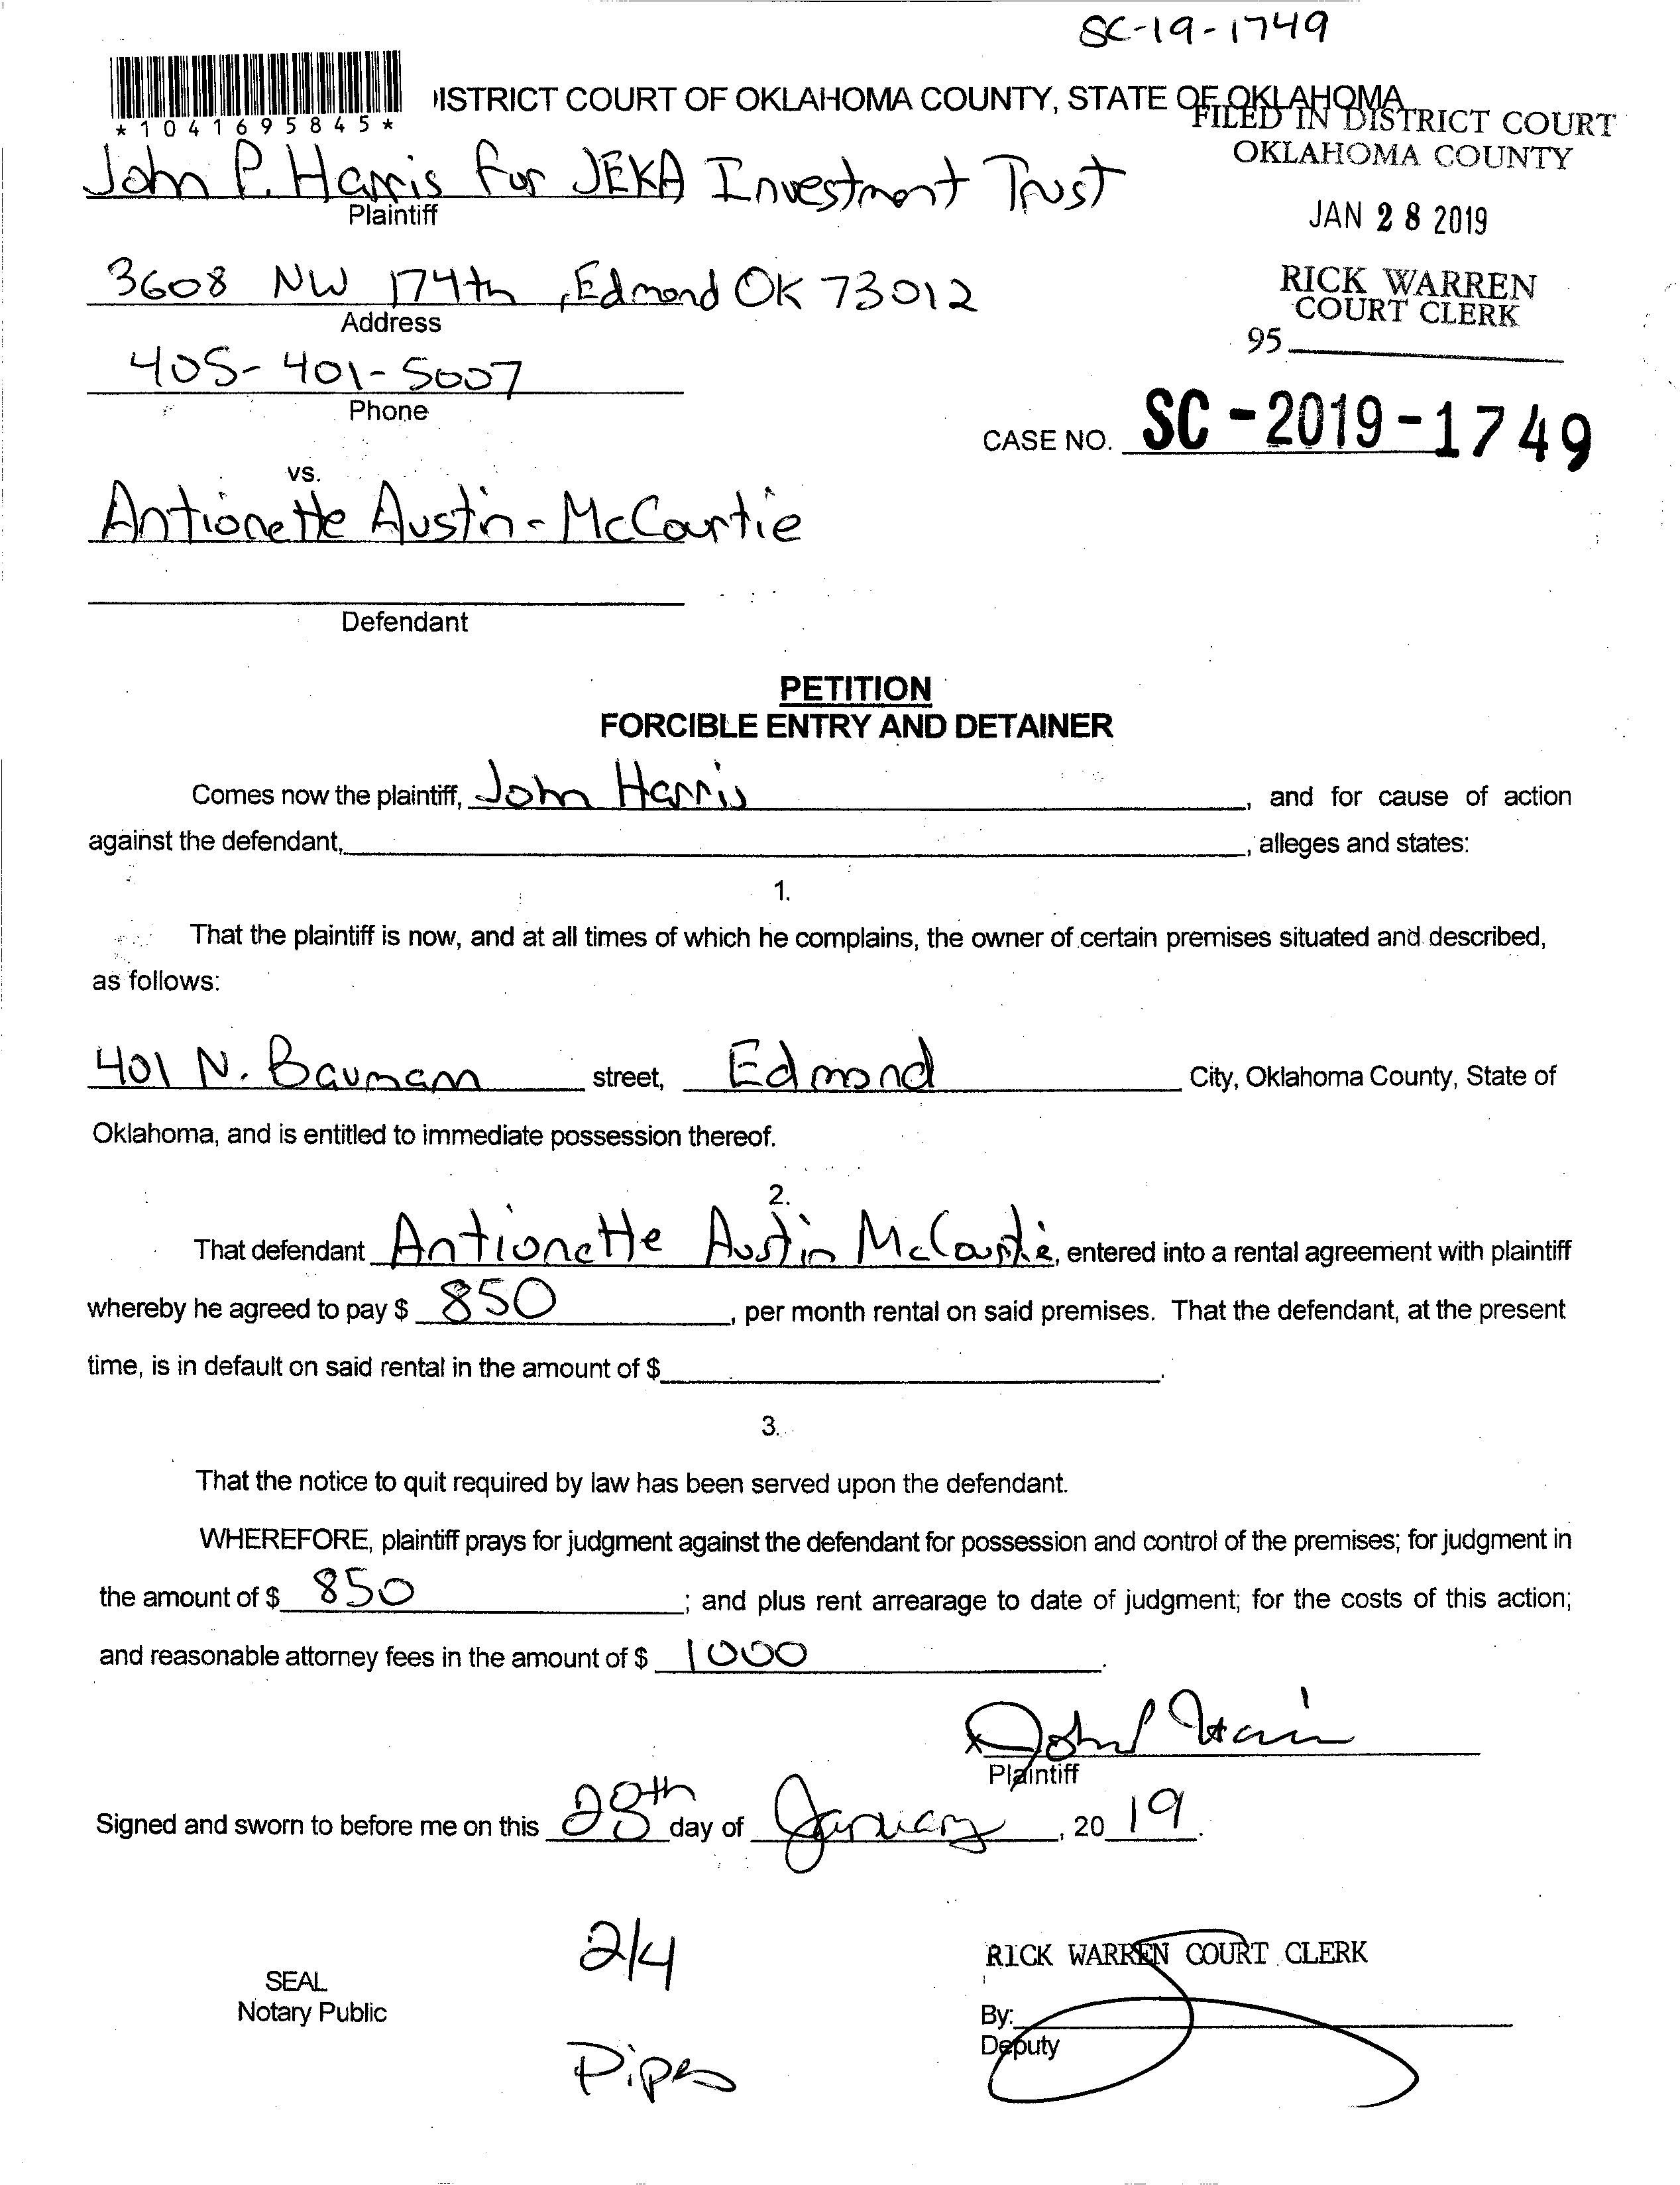 SC-19-1749
*1041695845*
DISTRICT COURT OF OKLAHOMA COUNTY, STATE OF OKLAHOMA
FILED IN DISTRICT COURT
OKLAHOMA COUNTY
John P. Harris for JEKA Investment Trust
Plaintiff
JAN 28 2019
3608 NW 174th, Edmond OK 73012
Address
RICK WARREN
COURT CLERK
95
405-401-5007
Phone
CASE NO. SC-2019-1749
vs.
Antionette Austin-McCourtie
Defendant
PETITION
FORCIBLE ENTRY AND DETAINER
Comes now the plaintiff, John Harris, and for cause of action
against the defendant, , alleges and states:
1.
That the plaintiff is now, and at all times of which he complains, the owner of certain premises situated and described,
as follows:
401 N. Bauman street, Edmond City, Oklahoma County, State of
Oklahoma, and is entitled to immediate possession thereof.
2.
That defendant Antionette Austin McCourtie, entered into a rental agreement with plaintiff
whereby he agreed to pay $ 850, per month rental on said premises. That the defendant, at the present
time, is in default on said rental in the amount of $ .
3.
That the notice to quit required by law has been served upon the defendant.
WHEREFORE, plaintiff prays for judgment against the defendant for possession and control of the premises; for judgment in
the amount of $ 850 ; and plus rent arrearage to date of judgment; for the costs of this action;
and reasonable attorney fees in the amount of $ 1000.
x John P Harris
Plaintiff
Signed and sworn to before me on this 28th day of January, 2019.
2/4
RICK WARREN COURT CLERK
SEAL
Notary Public
By:
Deputy
Pipes